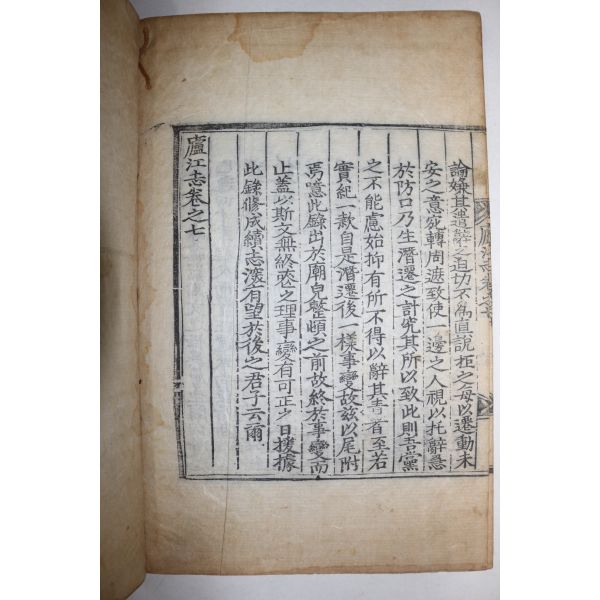 論嫌其遣辭之迫切不爲直說拒之毋以遷動未
安之意宛轉周遮致使一邊之人視以托辭急
於防口乃生潛遷之計究其所以致此則吾黨
之不能慮始抑有所不得以辭其責者至若
實紀一款自是潛遷後一樣事變故玆以尾附
焉噫此錄出於廟皃整頓之前故終於事變而
止蓋以斯文無終否之理事變有可正之日援據
此錄修成續志深有望於後之君子云爾
廬江志卷之七
廬江志卷之七